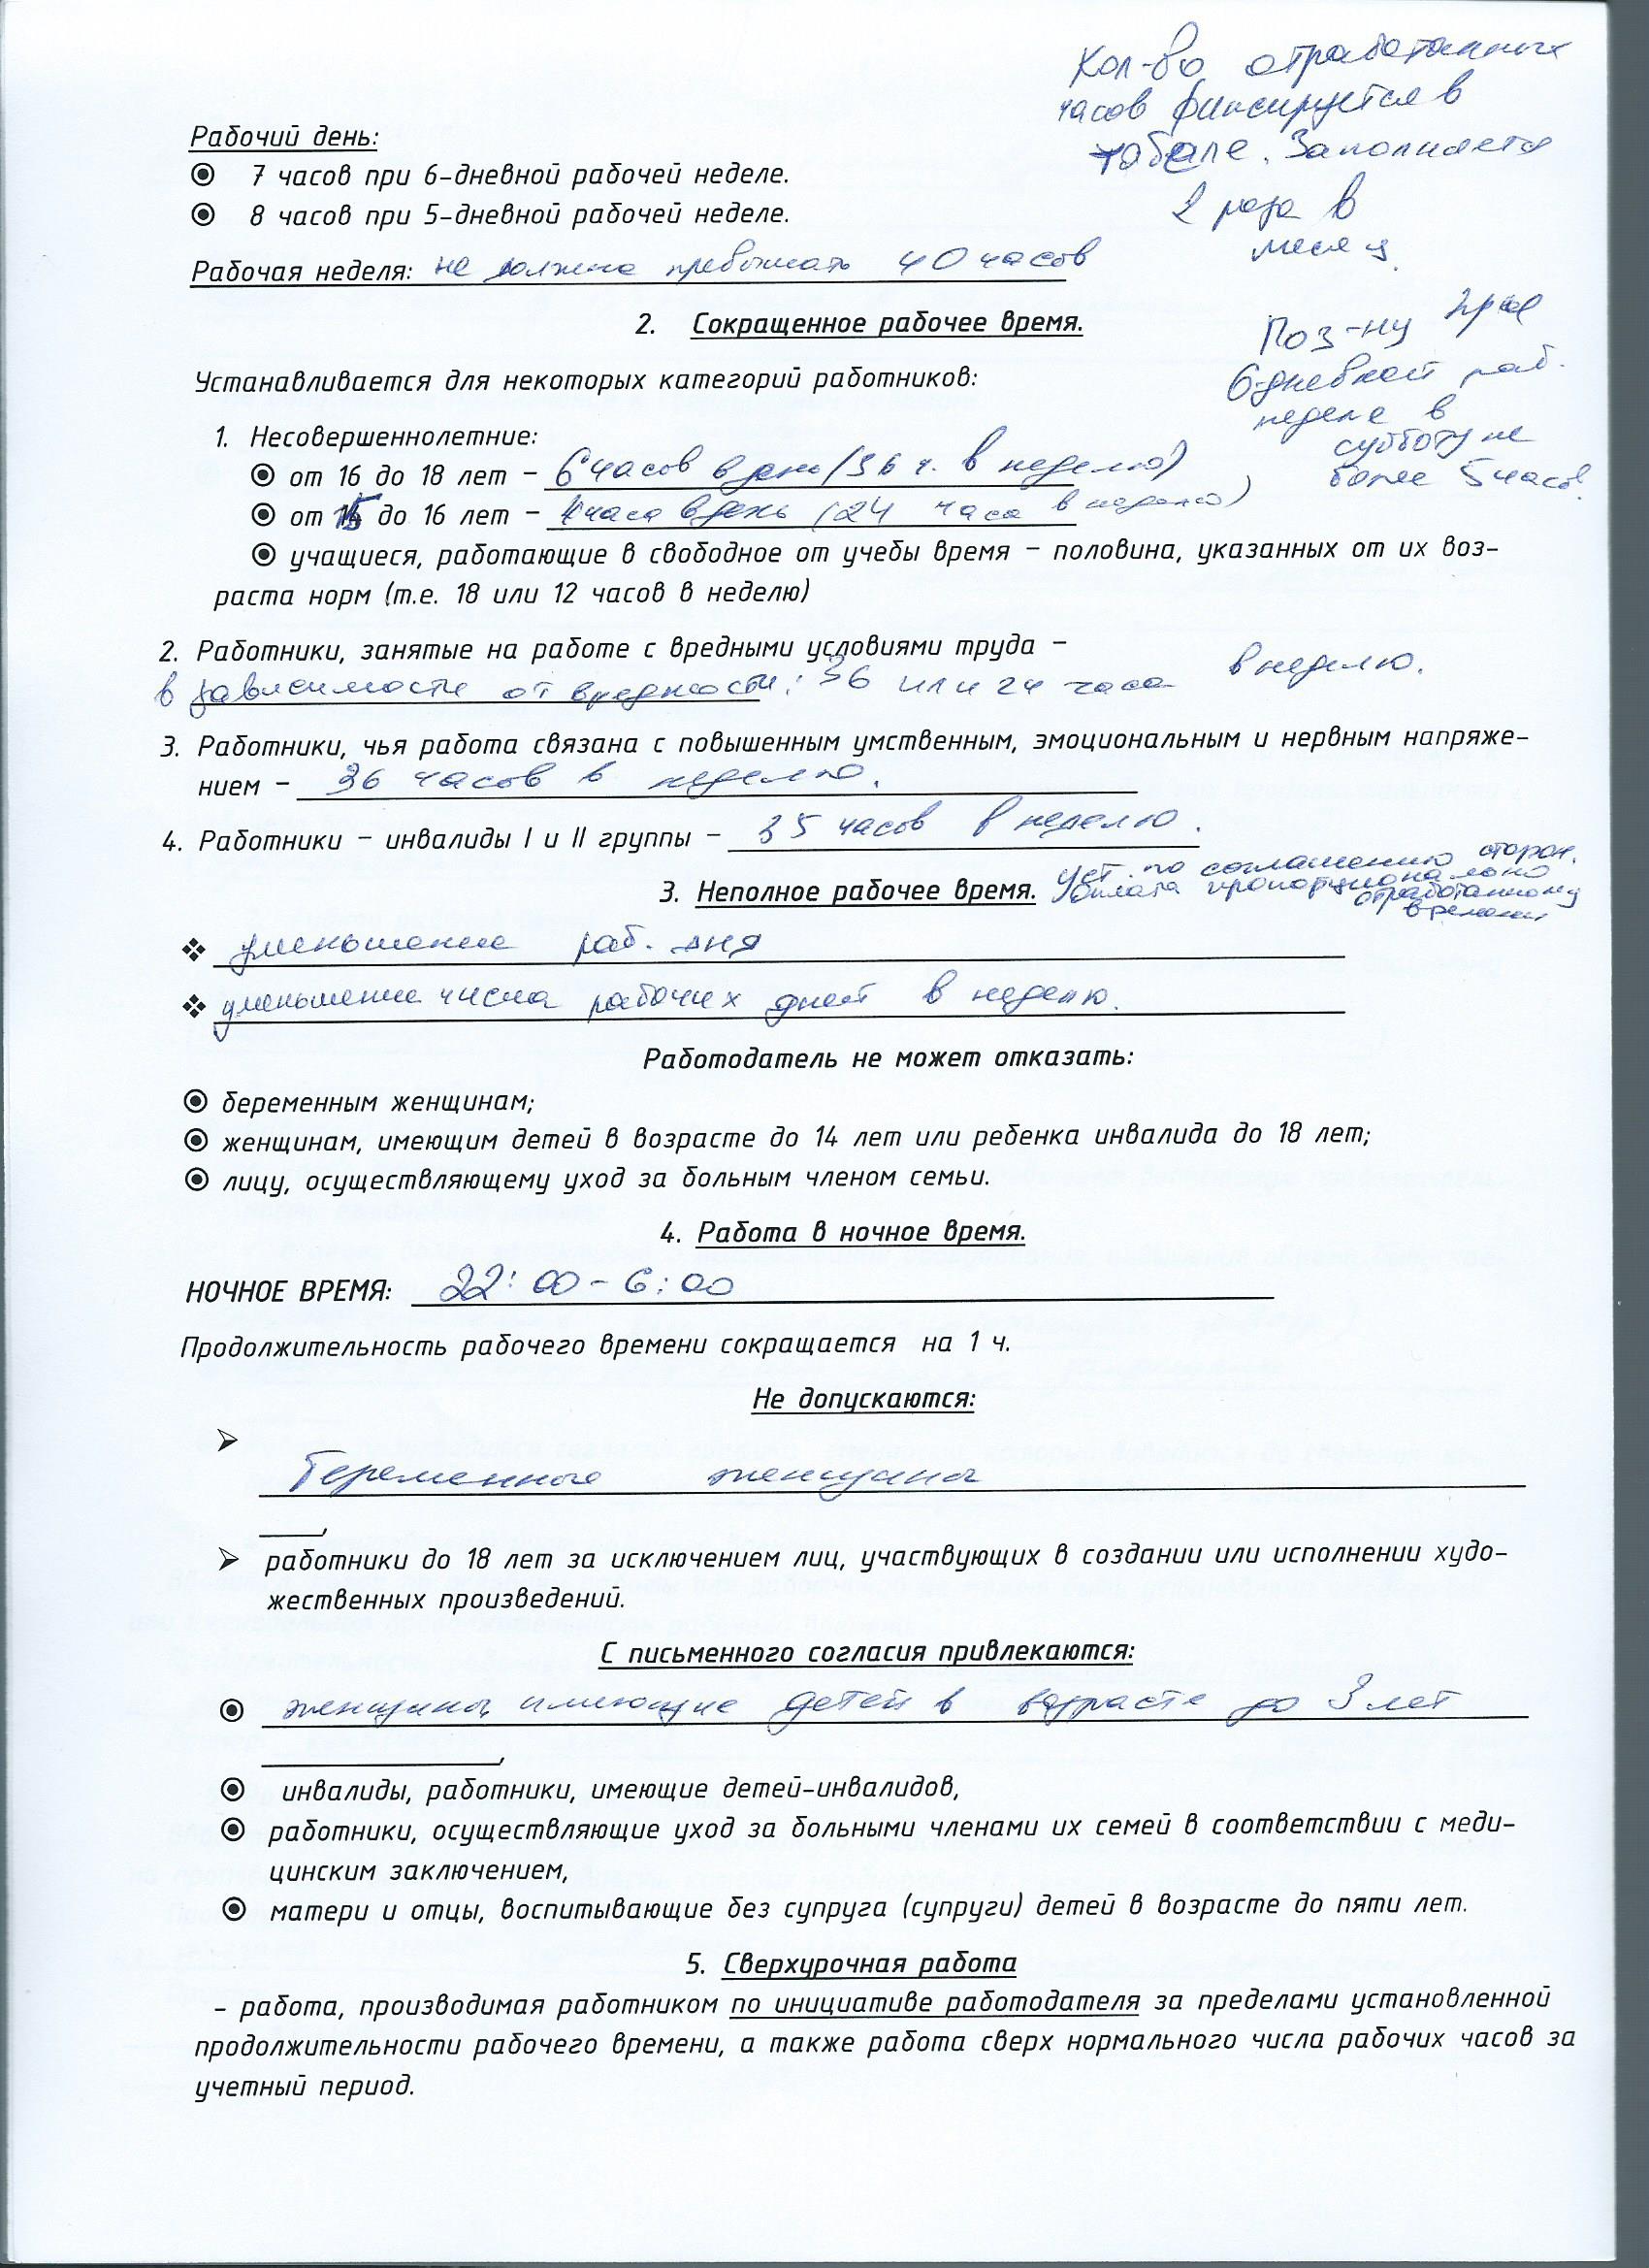 Кол-во отработанных
часов фиксируется в
табеле. Заполняется
2 раза в
месяц.
Рабочий день:
7 часов при 6-дневной рабочей неделе.
8 часов при 5-дневной рабочей неделе.
Рабочая неделя: не должна превышать 40 часов
2. Сокращенное рабочее время.
Поз-ну при
6-дневной раб.
неделе в
субботу не
более 5 часов.
Устанавливается для некоторых категорий работников:
1. Несовершеннолетние:
от 16 до 18 лет – 6 часов в день (36 ч. в неделю)
от 15 до 16 лет – 4 часа в день (24 часа в неделю)
учащиеся, работающие в свободное от учебы время – половина, указанных от их воз-
раста норм (т.е. 18 или 12 часов в неделю)
2. Работники, занятые на работе с вредными условиями труда –
в зависимости от вредности: 36 или 24 часа в неделю.
3. Работники, чья работа связана с повышенным умственным, эмоциональным и нервным напряже-
нием – 36 часов в неделю.
4. Работники – инвалиды I и II группы – 35 часов в неделю.
3. Неполное рабочее время. Уст. по соглашению сторон.
Оплата пропорционально
отработанному
времени
уменьшение раб. дня
уменьшение числа рабочих дней в неделю.
Работодатель не может отказать:
беременным женщинам;
женщинам, имеющим детей в возрасте до 14 лет или ребенка инвалида до 18 лет;
лицу, осуществляющему уход за больным членом семьи.
4. Работа в ночное время.
НОЧНОЕ ВРЕМЯ: 22:00 – 6:00
Продолжительность рабочего времени сокращается на 1 ч.
Не допускаются:
Беременные женщины
,
работники до 18 лет за исключением лиц, участвующих в создании или исполнении худо-
жественных произведений.
С письменного согласия привлекаются:
женщины, имеющие детей в возрасте до 3 лет
,
инвалиды, работники, имеющие детей-инвалидов,
работники, осуществляющие уход за больными членами их семей в соответствии с меди-
цинским заключением,
матери и отцы, воспитывающие без супруга (супруги) детей в возрасте до пяти лет.
5. Сверхурочная работа
– работа, производимая работником по инициативе работодателя за пределами установленной
продолжительности рабочего времени, а также работа сверх нормального числа рабочих часов за
учетный период.